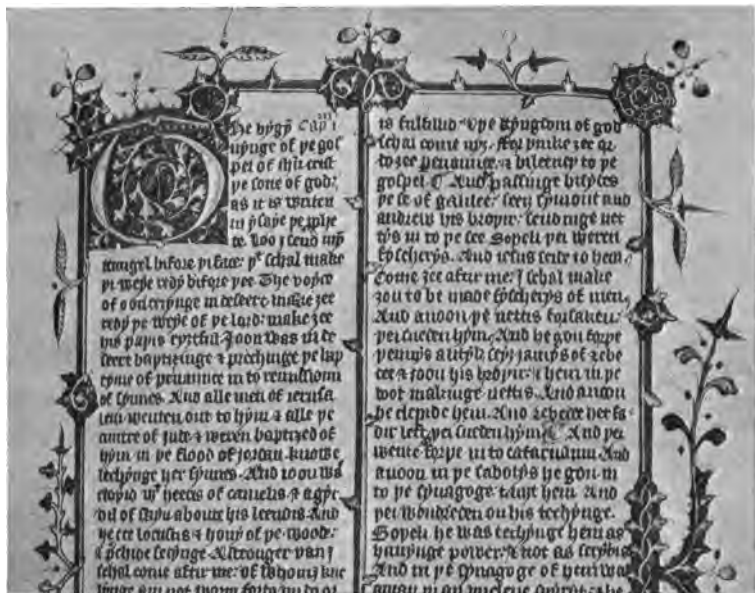 þe bygȳ
nynge of þe gos
pel of ihū crist
þe sone of god:
as it is writen
in ysaye þe ꝓphe
te. loo I send myn
aungel bifore þi face: þt schal make
þi weye redy bifore þee. The voyce
of oon criynge in desert: make ȝee
redy þe weye of þe lord: make ȝee
his paþis Joon was in de
sert baptisinge ⁊ prechinge þe bap
tym of penaunce in to remissioun
of synnes. And alle men of ierusa
lem wenten out to hym ⁊ alle þe
of iude ⁊ weren baptized of
hym in þe flood of iordan knowe
lechynge her synnes. And ioon was
cloþid wt heeris of camelis ⁊ a gyr
dil of skyn aboute his leendis And
he eet locustis ⁊ hony of þe wode:
⁊ seynge. A stronger þan I
schal come aftir me: of whom I kne
lynge am not worþi
is fulfillid. ⁊ þe kyngdom of god
schal come
penaunce. ⁊ bileeuey to þe
gospel. And passinge bisydes
þe se of galilee: seey symount and
andrew his broþir: sendinge net
tys in to þe see Soþeli þei weren
fyscherys. And iesus seide to hem
come ȝee aftir me: I schal make
ȝou to be made fyscherys of men.
And anoon þe nettis forsaken:
þei sueden hym. And he gon forþe
þennys a litil: seyȝ iamys of ȝebe
dee ⁊ ioon his broþir: ⁊ hem in þe
boot makinge nettis. And anoon
he clepide hem. And ȝebedee her fa
dir left: þei sueden hym And þei
wente forþe in to cafarnaum. And
anoon in þe sabotys he gon in
to þe synagoge: tauȝt hem And
þei wondreden on his techynge.
Soþeli he was techynge hem as
hauynge power: ⁊ not as scrybis
And in þe synagoge of hem was
a man in an unclene spirit: